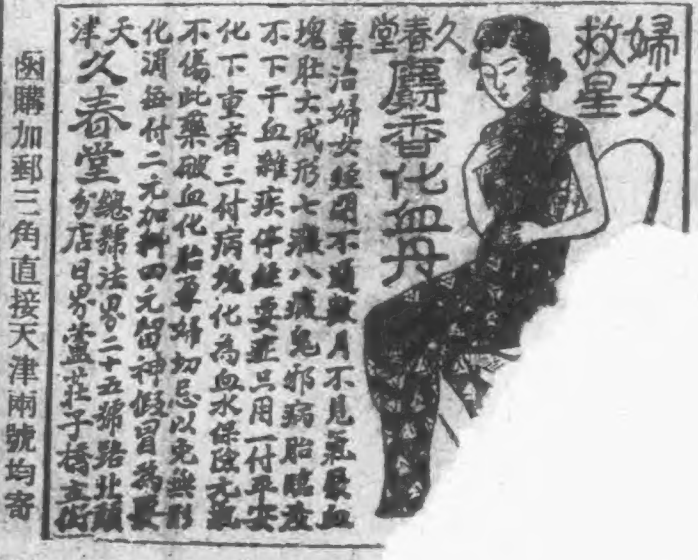 婦女
救星
久春堂
麝香化血丹
專治婦女經閉不通數月不見氣聚血
塊肚大成形七癥八瘕鬼邪病胎臌症
不下干血雜疾停經要症只用一付平安
化下重者三付病塊化為血水保險元氣
不傷此藥破血化胎孕婦切忌以免無形
化消每付二元加料四元留神假冒為要
天津久春堂總號法界二十五號路北頭
分店日界蘆莊子橋立街
函購加郵三角直接天津兩號均寄